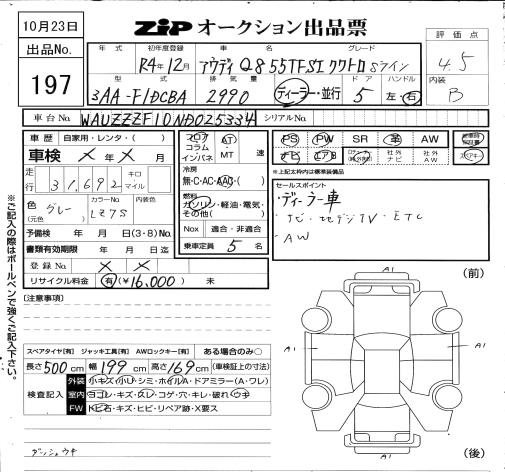 10月23日
ZiP オークション出品票
出品No.
197
年式
初年度登録
車名
グレード
R4年12月
アウディ Q8 55TFSI クワトロ Sライン
型式
排気量
ドア
ハンドル
3AA-F1DCBA
2990
ディーラー・並行
5
左・右
評価点
4.5
内装
B
車台No.
WAUZZZF10ND025334
シリアルNo.
車歴
自家用・レンタ・( )
車検 × 年 × 月
走行
31,692
キロ
マイル
色
(元色)
グレー
カラーNo.
LZ7S
内装色
予備検 年 月 日(3・8)No.
書類有効期限 年 月 日迄
登録No. × ×
リサイクル料金 有(¥16,000) 未
フロア
コラム
インパネ
AT
MT
速
冷房
無・C・AC・AAC・( )
燃料
ガソリン・軽油・電気・
その他( )
Nox 適合・非適合
乗車定員 5 名
PS PW SR 革 AW
ナビ エアB
社外
ナビ
社外
AW
※上記太わ内は標準装備品
セールスポイント
・ディーラー車
・ナビ・地デジTV・ETC
・AW
[注意事項]
スペアタイヤ[有] ジャッキ工具[有] AWロックキー[有] ある場合のみ○
長さ500cm 幅199cm 高さ169cm (車検証上の寸法)
検査記入
外装 小キズ・小U・シミ・ホイルA・ドアミラー(A・ワレ)
室内 ヨゴレ・キズ・スレ・コゲ・穴・キレ・破れ・ウキ
FW トビ石・キズ・ヒビ・リペア跡・X要ス
ダッシュウキ
※ご記入の際はボールペンで強くご記入下さい。
(前)
A1
A1
A1
A1
(後)